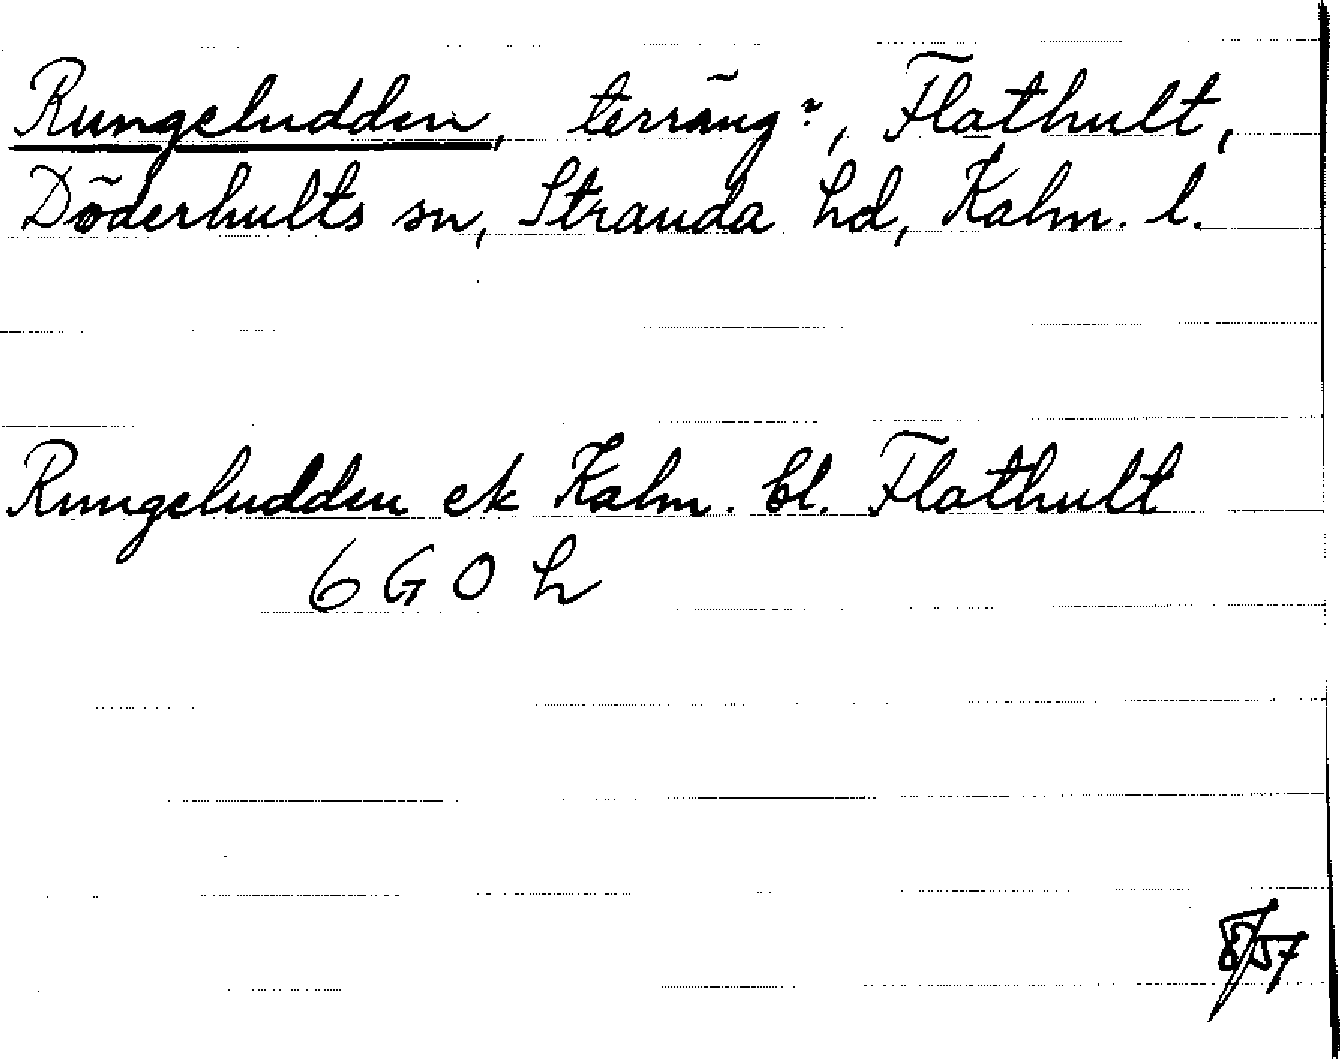 Rungeludden, terräng?, Flathult,
Döderhults sn, Stranda hd, Kalm. l.
Rungeludden ek Kalm. bl. Flathult
6 G 0 h